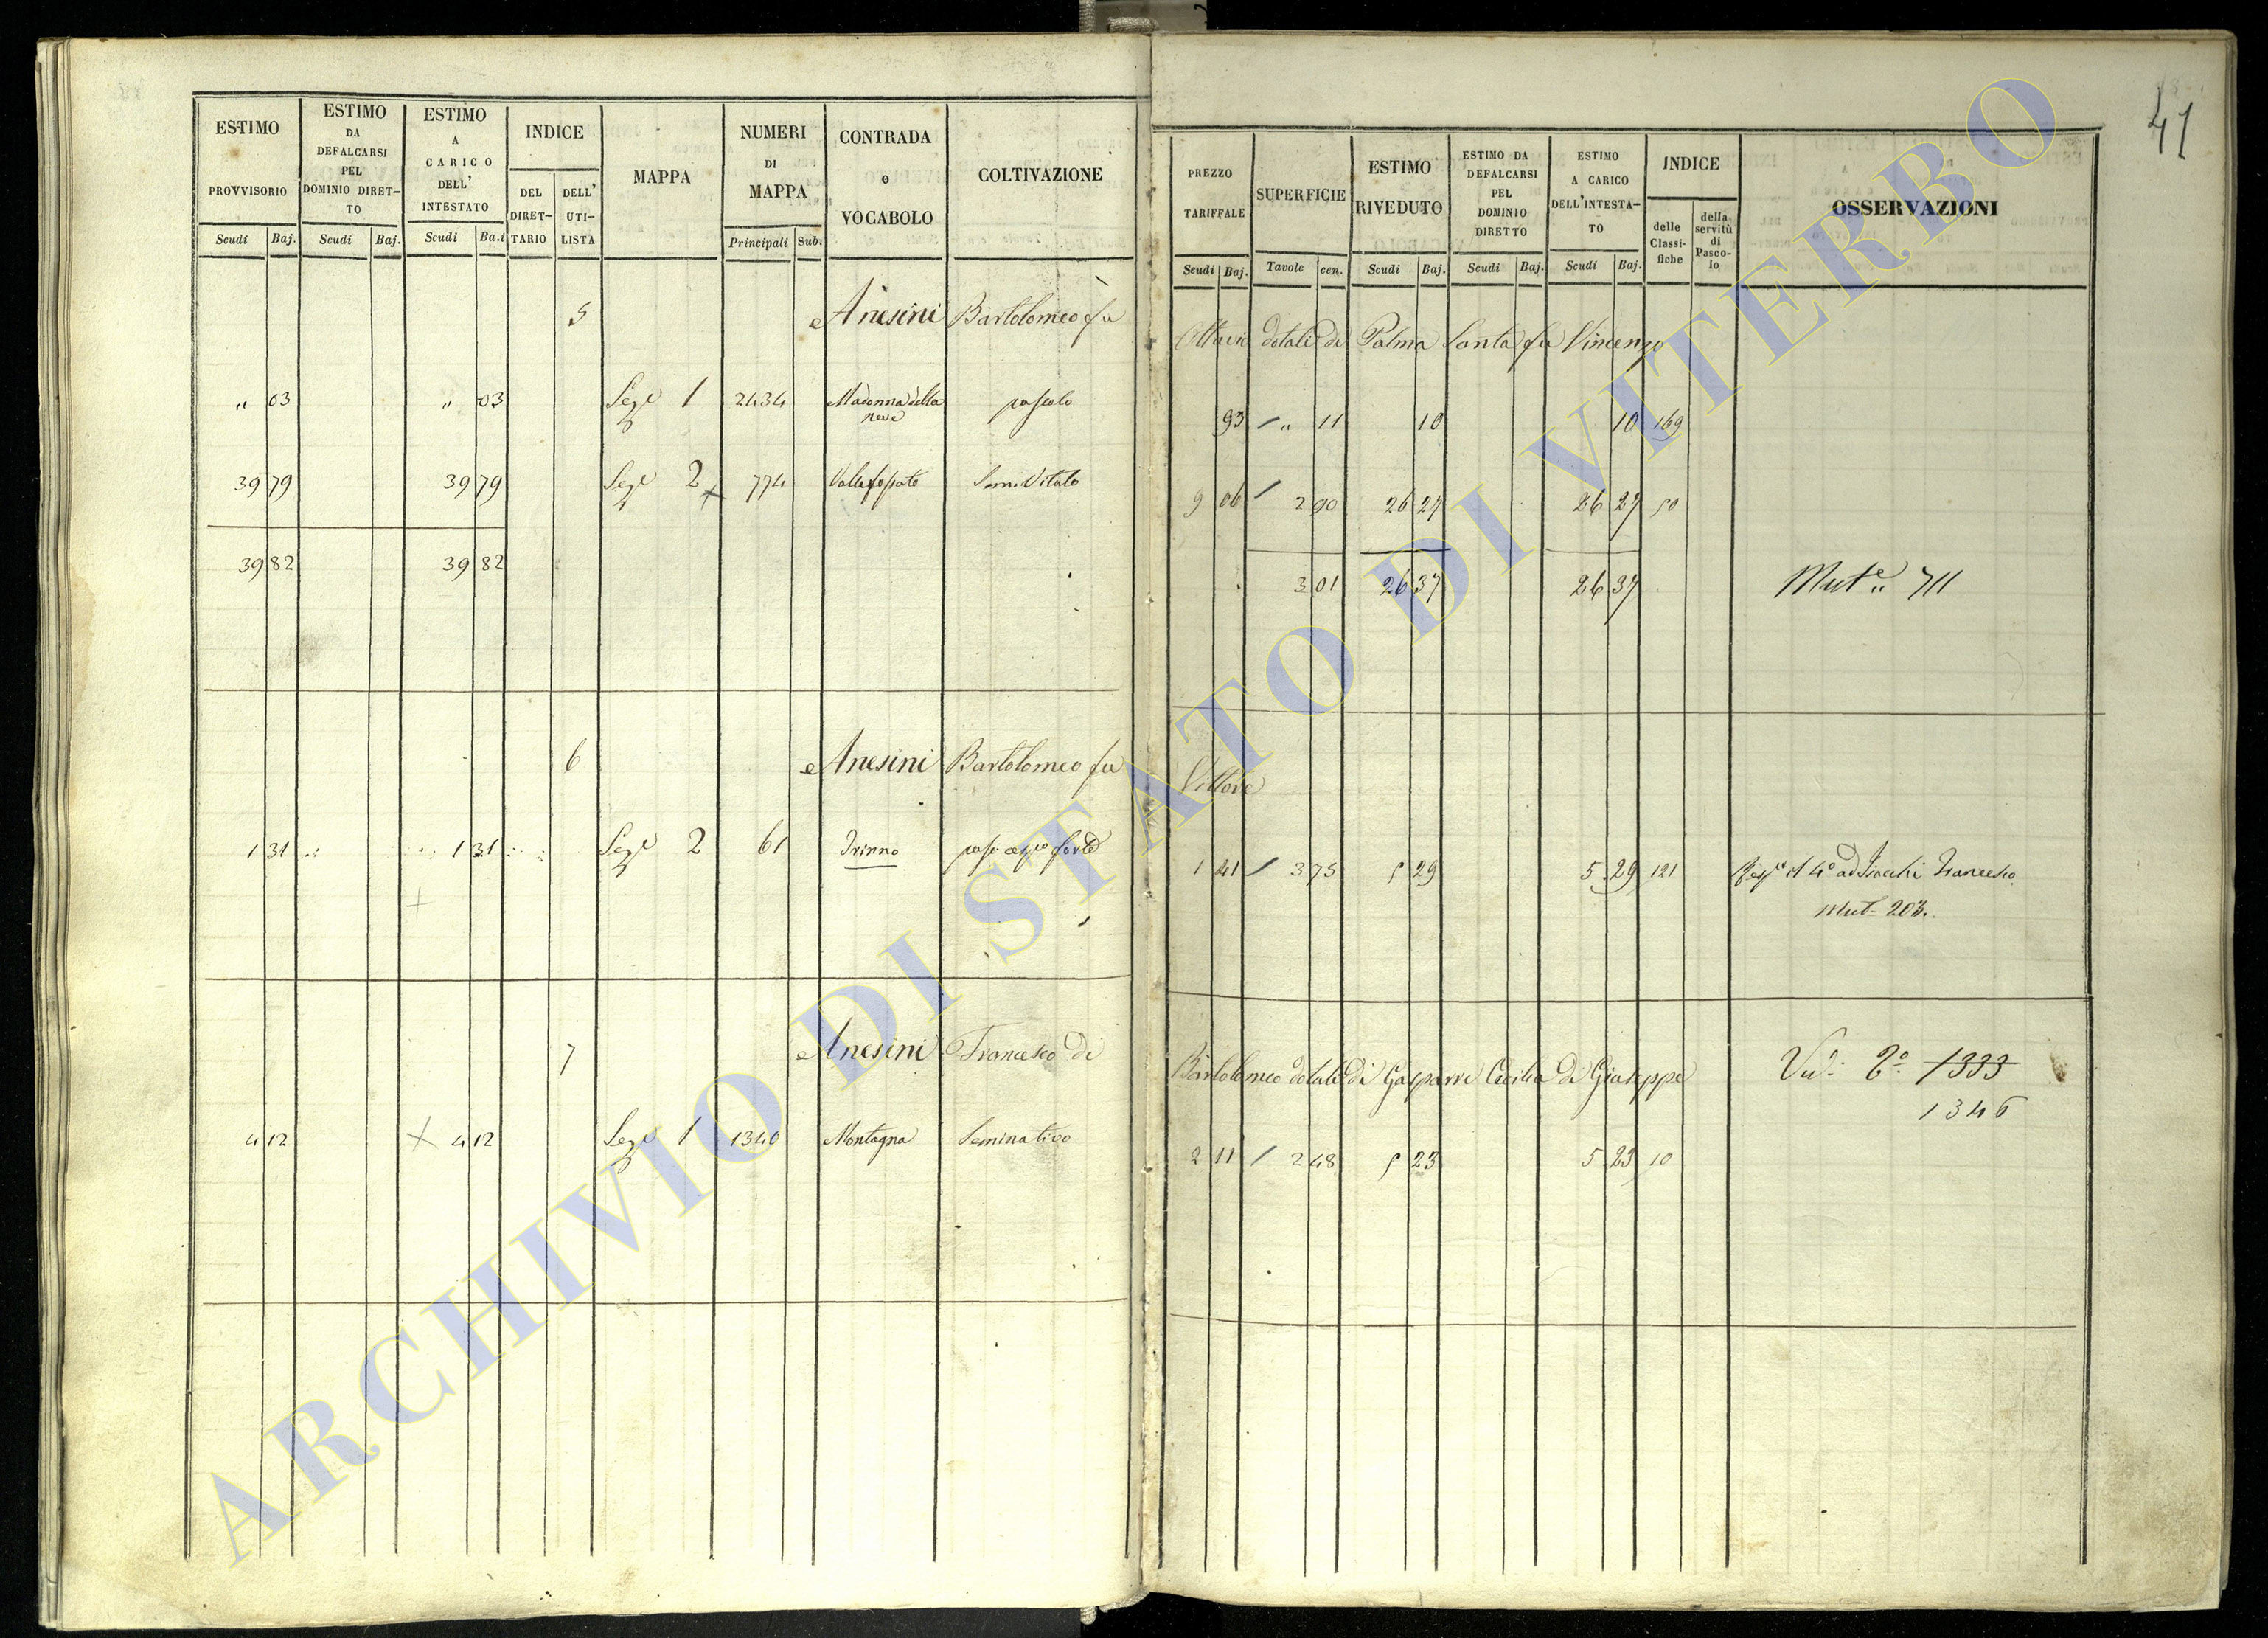 41
ESTIMO PROVVISORIO
Scudi Baj.
ESTIMO DA DEFALCARSI PEL DOMINIO DIRET-TO
Scudi Baj.
ESTIMO A CARICO DELL' INTESTATO
Scudi Ba.i
INDICE
DEL DIRET-TARIO
DELL' UTI-LISTA
MAPPA
NUMERI DI MAPPA
Principali Sub.
CONTRADA o VOCABOLO
COLTIVAZIONE
PREZZO TARIFFALE
Scudi Baj.
SUPERFICIE
Tavole cen.
ESTIMO RIVEDUTO
Scudi Baj.
ESTIMO DA DEFALCARSI PEL DOMINIO DIRETTO
Scudi Baj.
ESTIMO A CARICO DELL'INTESTA-TO
Scudi Baj.
INDICE
delle Classi-fiche
della servitù di Pasco-lo
OSSERVAZIONI
5 Anesini Bartolomeo fu Ottavio dotale di Palma Santa fu Vincenzo
" 03 " 03 Sez.e 1 2434 Madonna della neve pascolo 93 " 11 10 10 169
39 79 39 79 Sez.e 2 774 Vallefossato Sem. Vitato 9 06 2 90 26 27 26 27 50
39 82 39 82 3 01 26 37 26 37 Mut.e 711
6 Anesini Bartolomeo fu Vittore
1 31 1 31 Sez.e 2 61 paso forte 1 41 3 75 5 29 5 29 121 il 4° ad Francesco
Mut. 203.
7 Anesini Francesco di Bartolomeo dotale di Gasparri Cecilia di Giuseppe 1333
1346
4 12 4 12 Sez.e 1 1340 Montagna Seminativo 2 11 2 48 5 23 5 23 10
ARCHIVIO DI STATO DI VITERBO